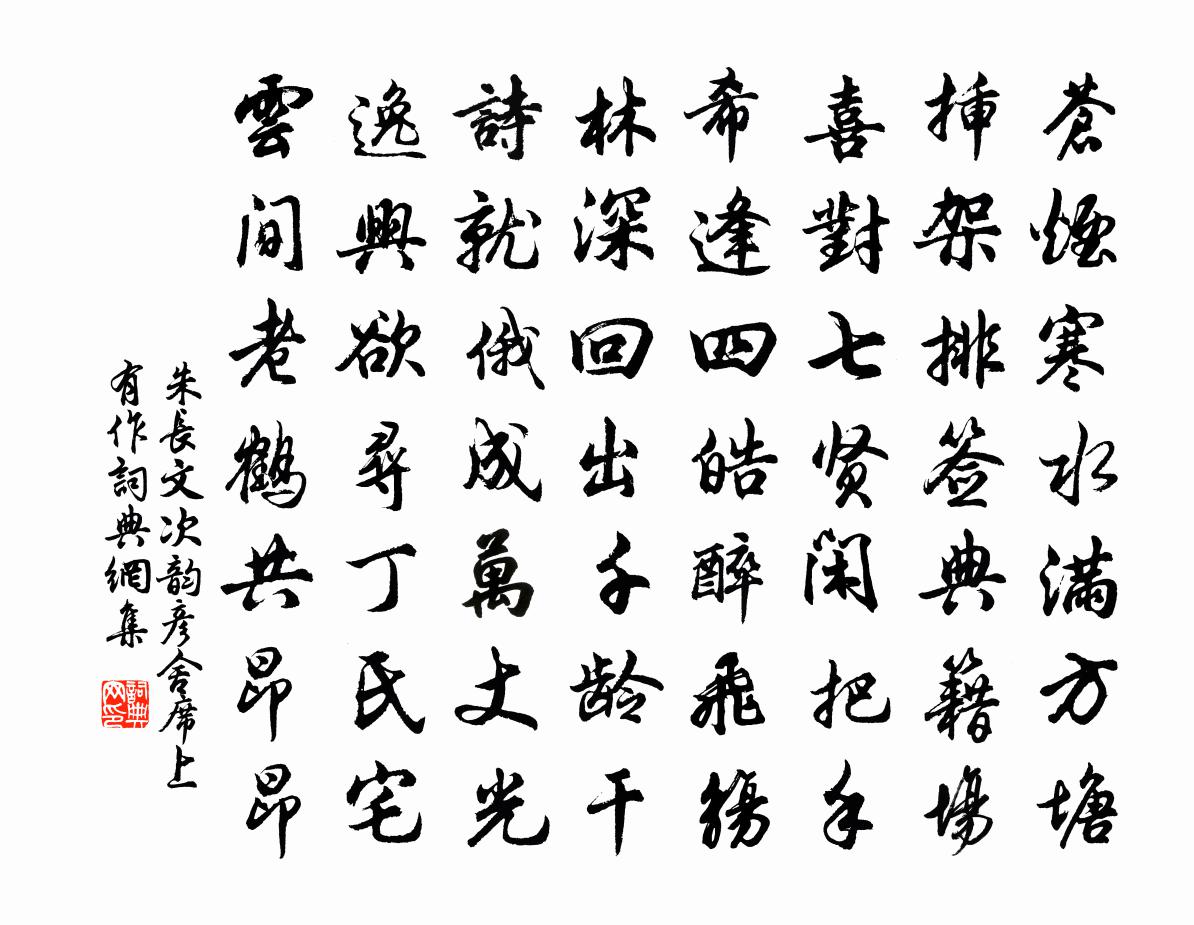 蒼煙寒水滿方塘
揷架排签典籍場
喜對七贤閑把手
希逢四皓醉飛觴
林深回出千龄干
詩就俄成萬丈光
逸興欲尋丁氏宅
雲间老鹤共昂昂
朱長文次韵彦舍席上
有作詞典網集
詞典网印